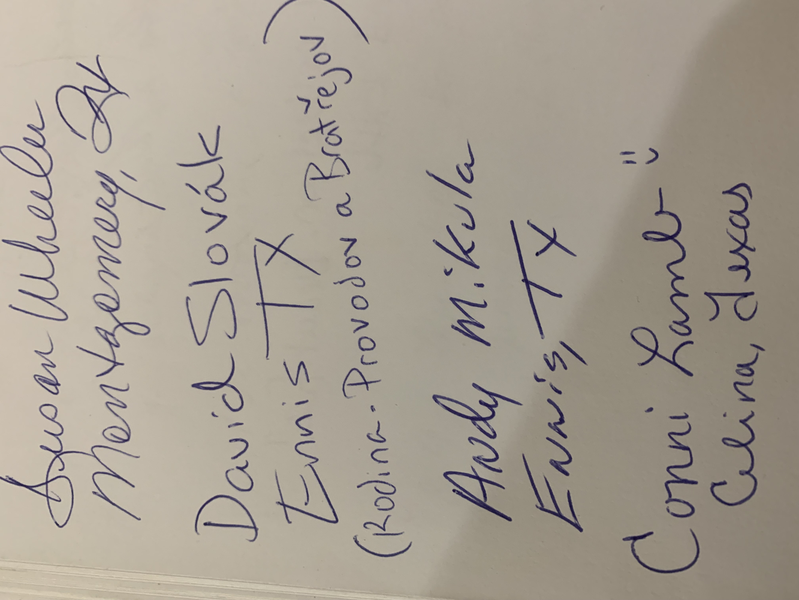 Susan Wheeler
Montgomery, Tx
David Slovák
Ennis TX
(Rodina - Provodov a Bratřejov)
Andy Mikula
Ennis, TX
Conni Lamb ¨⌣
Celina, Texas